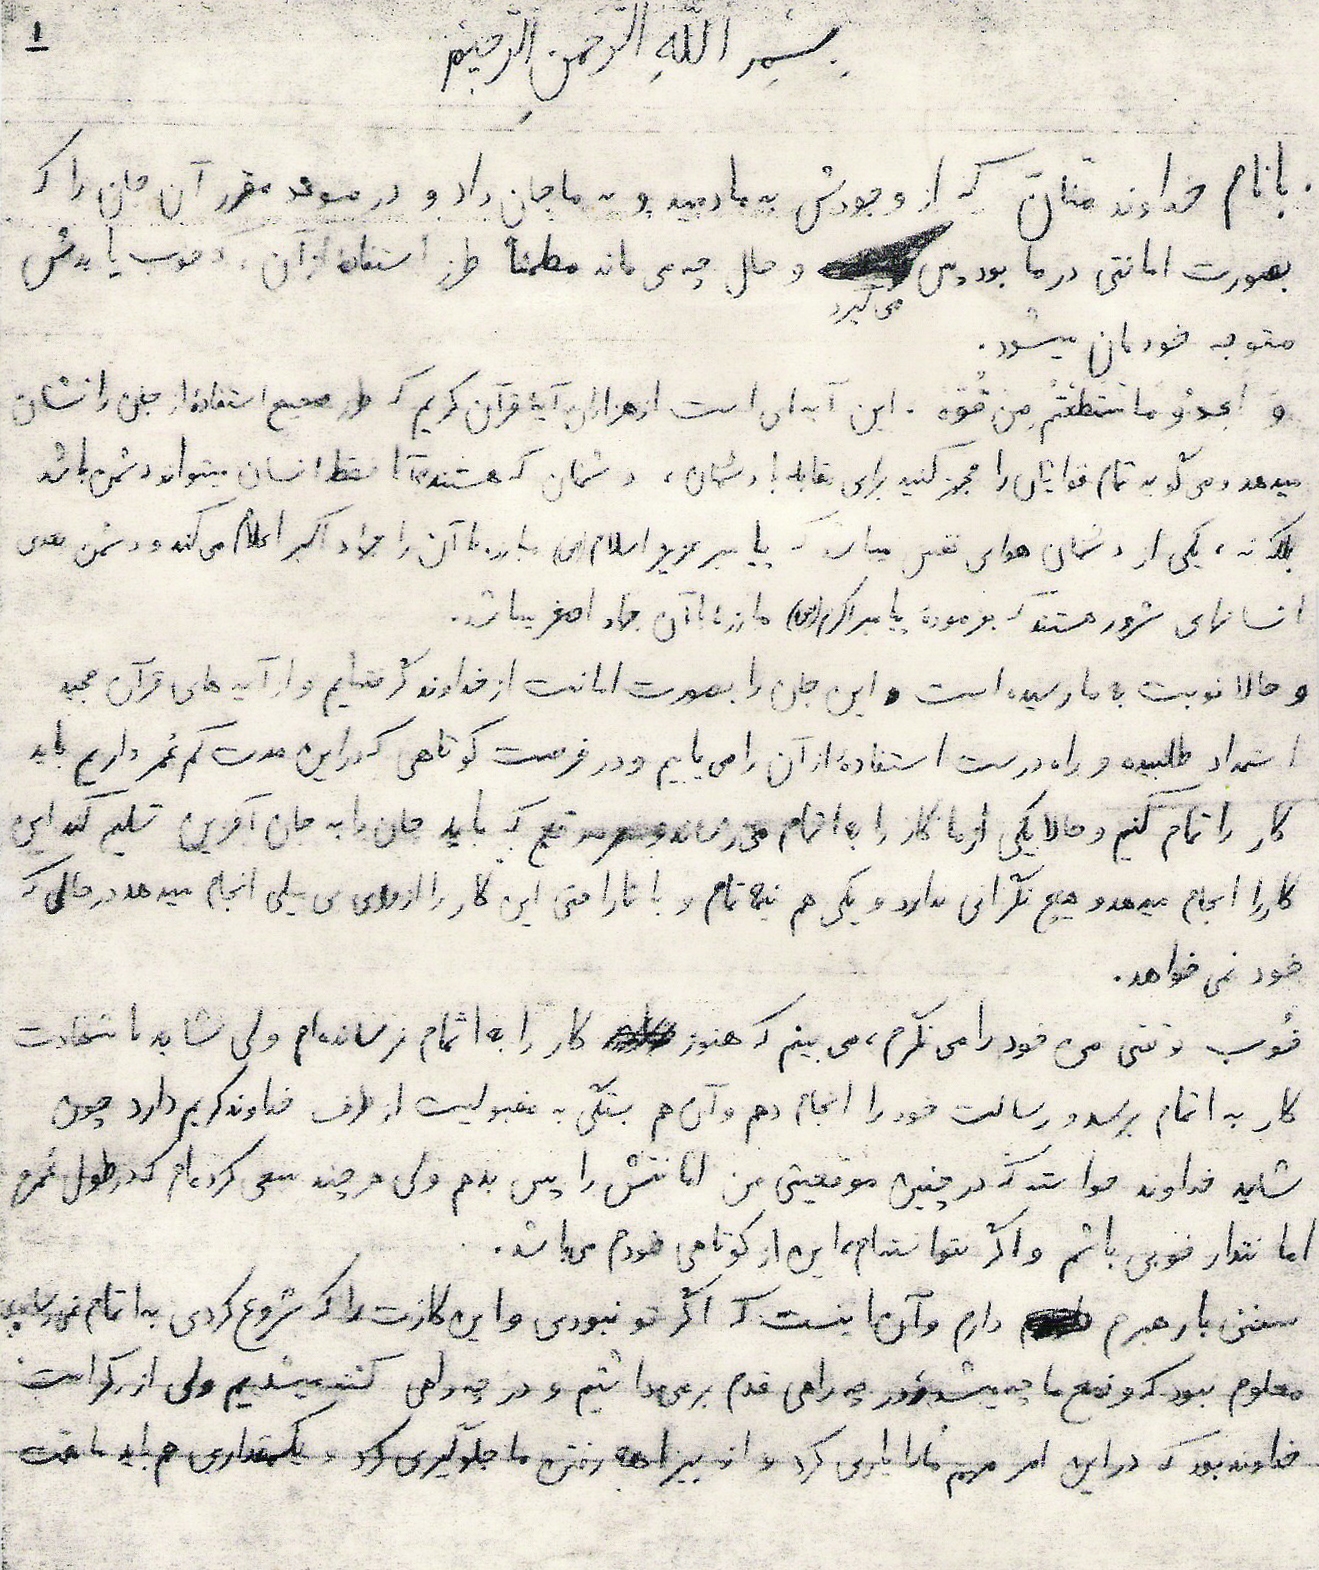 ۱
بسم الله الرحمن الرحیم
بانام خداوند منان که از وجودش به ما دمید و به ما جان داد و در موعد مقرر آن جان را که
بصورت امانتی در ما بود پس می‌گیرد و حال چه می ماند مطمئناً طرز استفاده از آن، که خوب یا بدش
متوجه خودمان میشود.
و اعدوا ما استطعتم من قوة. این آیه ای است از هزاران آیهٔ قرآن کریم که طرز صحیح استفاده از جان را نشان
میدهد و می گوید تمام قوایتان را مجهز کنید برای مقابله با دشمنان، دشمنان که هستند آیا فقط انسان میتواند دشمن باشد
بلکه نه، یکی از دشمنان هوای نفس میباشد که پیامبر عزیز اسلام (ص) مبارزه با آن را جهاد اکبر اعلام می کند و دشمن بعدی
انسانهای شرور هستند که بفرمودهٔ پیامبر اکرم (ص) مبارزه با آن جهاد اصغر میباشد.
و حالا نوبت به ما رسیده است و این جان را بصورت امانت از خداوند گرفته‌ایم و از آیه های قرآن مجید
استمداد طلبیده و راه درست استفاده از آن را می یابیم و در فرصت کوتاهی که در این مدت کم عُمر داریم باید
کار را تمام کنیم و حالا یکی از ما کار را به اتمام می رساند و موقع که باید جان را به جان آفرین تسلیم کند این
کار را انجام میدهد و هیچ نگرانی ندارد و یکی هم نیمه تمام و با ناراحتی این کار را از روی بی میلی انجام میدهد در حالی که
خود نمی خواهد.
خوب وقتی من خود را می نگرم، می بینم که هنوز کار را به اتمام نرسانده‌ام ولی شاید با شهادت
کار به اتمام برسد و رسالت خود را انجام دهم و آن هم بستگی به مقبولیت از طرف خداوند کریم دارد چون
شاید خداوند خواسته که در چنین موقعیتی من امانتش را پس بدهم ولی هر چند سعی کرده‌ام که در طول عُمرم
امانتدار خوبی باشم و اگر نتوانسته‌ام، این از کوتاهی خودم می باشد.
سخنی با رهبرم دارم و آن اینست که اگر تو نبودی و این کارت را که شروع کردی به اتمام نمی‌رساندی
معلوم نبود که وضع ما چه میشد و در چه راهی قدم بر می داشتیم و در چه راهی کشته میشدیم ولی از کرامت
خداوند بود که در این امر مهم ما را یاری کرد و از بیراهه رفتن ما جلوگیری کرد و یکمقداری هم باید